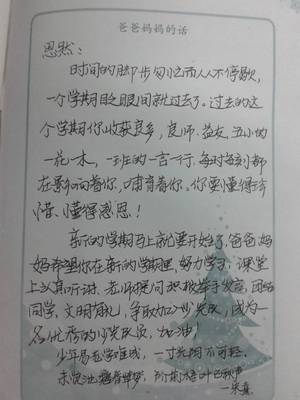 爸爸妈妈的话
思然:
时间的脚步匆匆而人人不停歇,
一个学期眨眼间就过去了。过去的这
个学期你收获良多,良师、益友、五小的
一花一木,一班的一言一行,每时每刻都
在影响着你,哺育着你。你要懂得珍
惜、懂得感恩!
新的学期马上就要开始了,爸爸妈
妈希望你在新的学期里,努力学习,课堂
上认真听讲,老师提问积极举手发言,团结
同学,文明有礼,争取加入少先队,成为一
名优秀的少先队员,加油!
少年易老学难成,一寸光阴不可轻。
未觉池塘春草梦,阶前梧叶已秋声